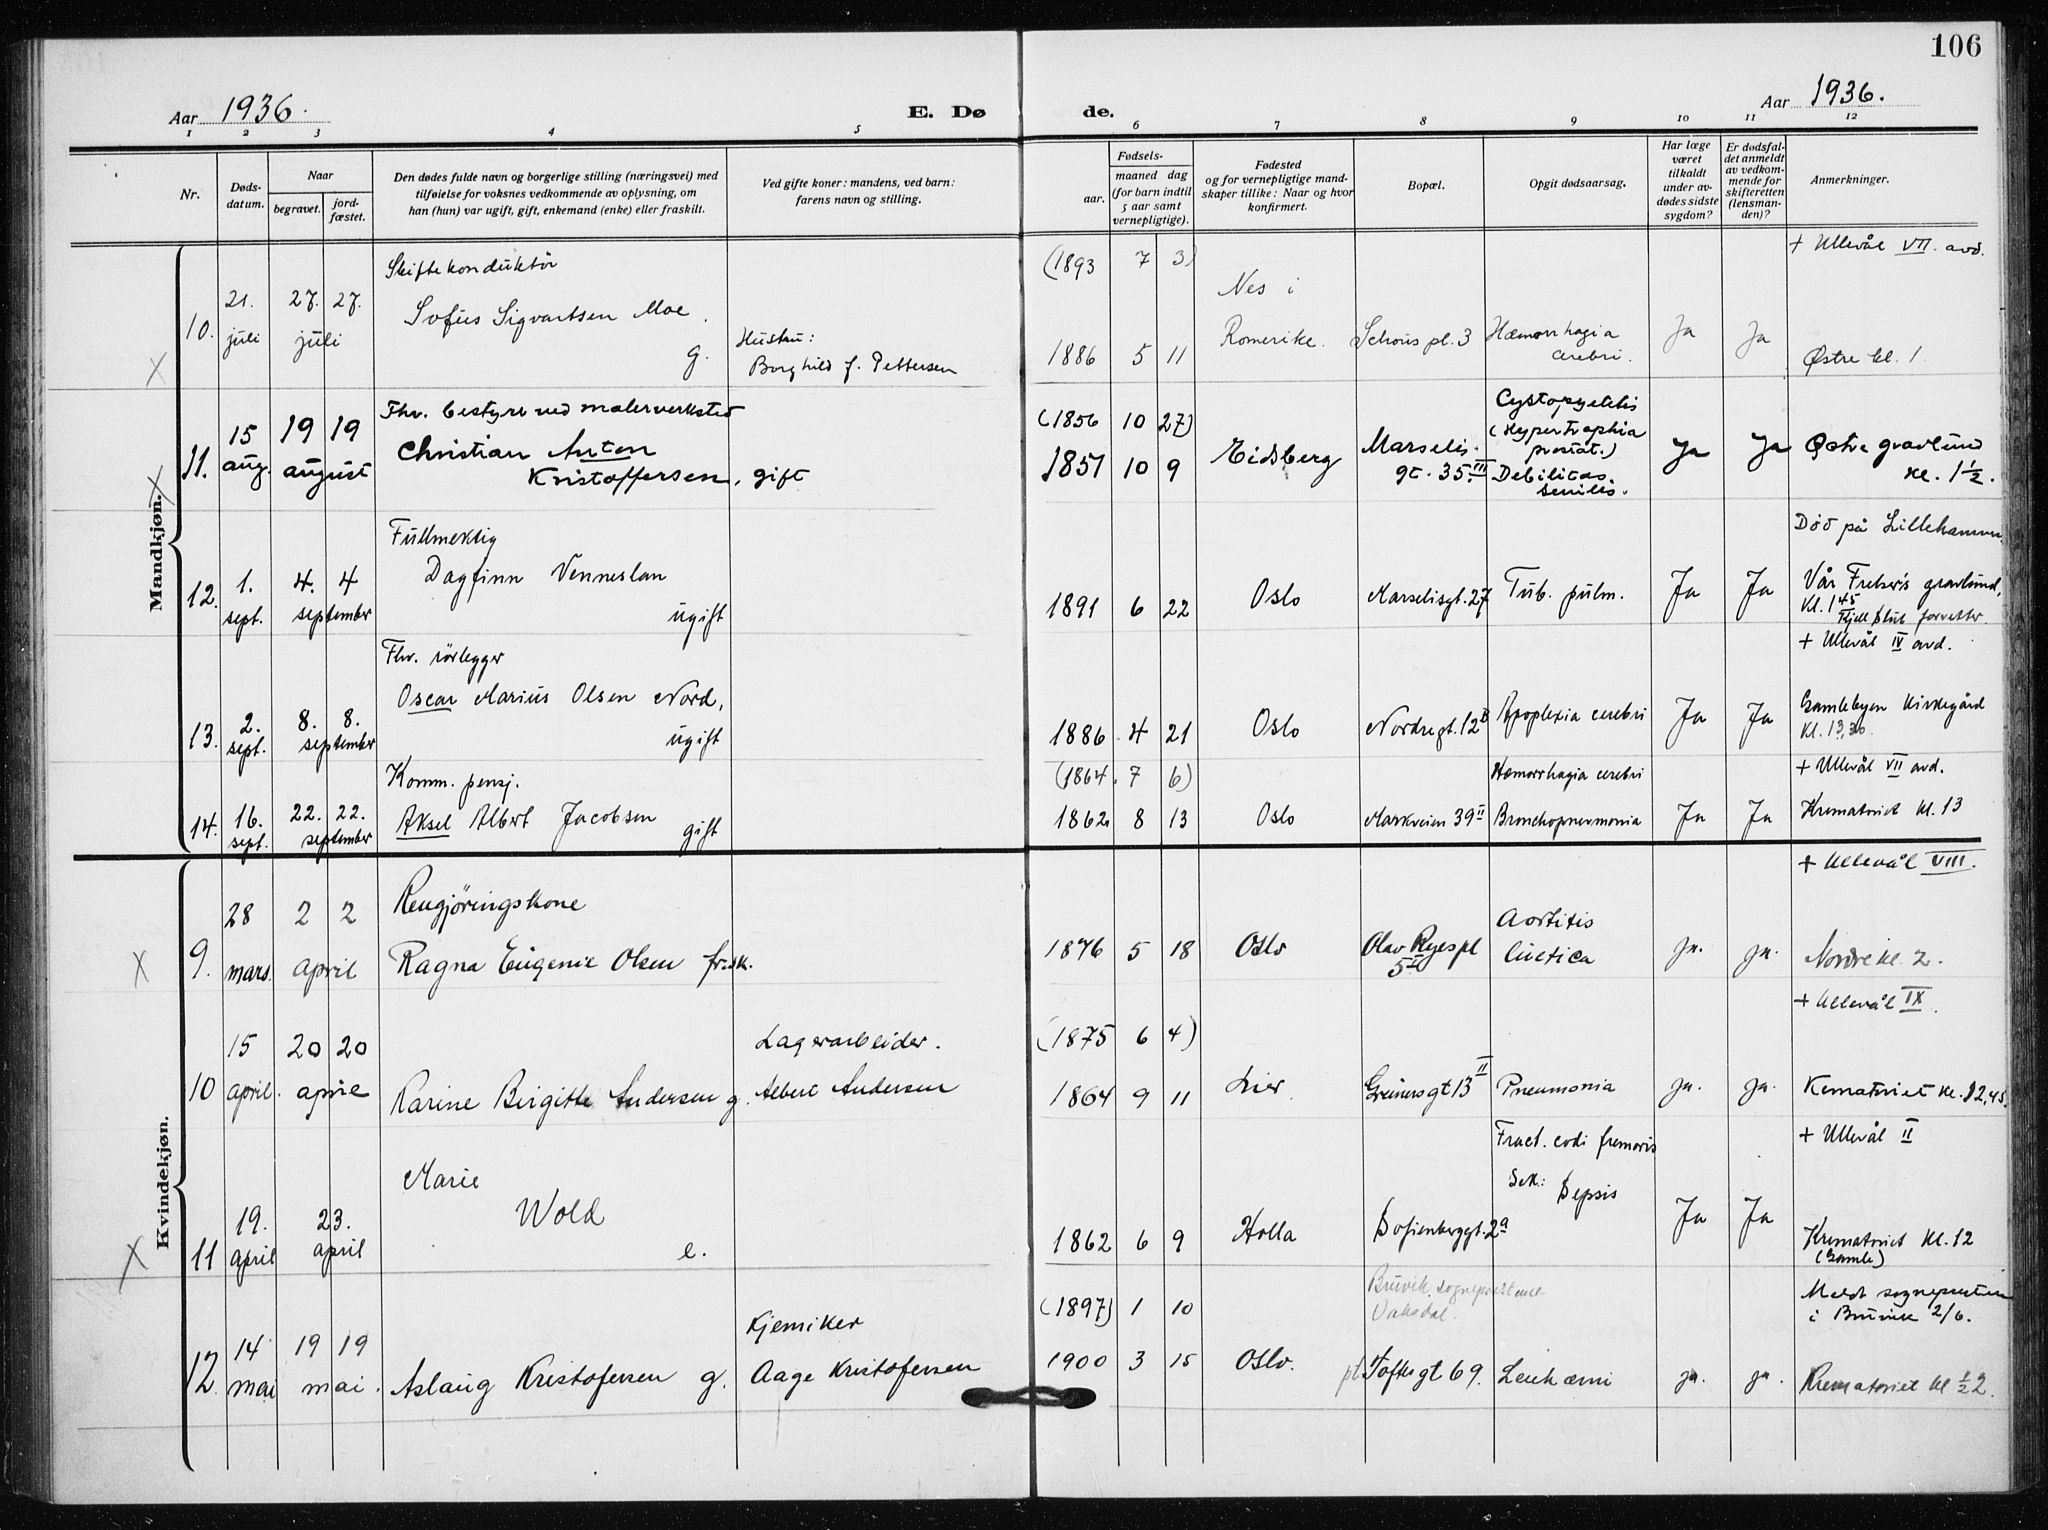 106
Aar 1936.
E. Døde.
Aar 1936.
1 2 3 4 5 6 7 8 9 10 11 12
Nr.
Døds-
datum.
Naar
begravet.
jord-
fæstet.
Den dødes fulde navn og borgerlige stilling (næringsvei) med
tilføielse for voksnes vedkommende av oplysning, om
han (hun) var ugift, gift, enkemand (enke) eller fraskilt.
Ved gifte koner: mandens, ved barn:
farens navn og stilling.
Fødsels-
aar. maaned dag
(for barn indtil
5 aar samt
vernepligtige).
Fødested
og for vernepligtige mand-
skaper tillike: Naar og hvor
konfirmert.
Bopæl.
Opgit dødsaarsag.
Har læge
været
tilkaldt
under av-
dødes sidste
sygdom?
Er dødsfal-
det anmeldt
av vedkom-
mende for
skifteretten
(lensman-
den)?
Anmerkninger.
Mandkjøn.
10.
21.
juli
27. 27.
juli
Skiftekonduktør
Sofus Sigvartsen Moe.
g.
Hustru:
Borghild f. Pettersen
(1893 7 3)
1886 5 11
Nes i
Romerike.
Schous pl. 3
Hæmorrhagia
cerebri.
Ja
Ja
+ Ullevål VII. avd.
Østre kl. 1.
11.
15
aug.
19 19
august
Fhv. bestyrer ved malerverksted
Christian Anton
Kristoffersen, gift
(1856 10 27)
1851 10 9
Eidsberg
Marselis.
gt. 35 III
Cystopyelitis
(Hypertrophia
prostat.)
Debilitas.
senilis.
Ja
Ja
Østre gravlund
kl. 1 1/2.
12.
1.
sept.
4. 4
september
Fullmektig
Dagfinn Venneslan
ugift
1891 6 22
Oslo
Marselisgt. 27
Tub. pulm.
Ja
Ja
Død på Lillehammer.
Vår Frelser's gravlund,
kl. 1 45
Kjell Stub forretter.
13.
2.
sept.
8. 8.
september
Fhv. rørlegger
Oscar Marius Olsen Nord,
ugift
1886 4 21
Oslo
Nordregt. 12 B
Apoplexia cerebri
Ja
Ja
+ Ullevål IV avd.
Gamlebyen Kirkegård
kl. 13,30
14.
16.
sept.
22. 22.
september
Komm. pensj.
Aksel Albert Jacobsen
gift
(1864. 7 6)
1862 8 13
Oslo
Markveien 39 II
Hæmorrhagia cerebri
Bronchopneumonia
Ja
Ja
+ Ullevål VII avd.
Krematoriet kl. 13
Kvindekjøn.
9.
28
mars.
2 2
april
Rengjøringskone
Ragna Eugenie Olsen frask.
1876 5 18
Oslo
Olav Ryes pl
5 II
Aortitis
luetica
ja.
ja.
+ Ullevål VIII.
Nordre kl. 2.
10
15
april.
20 20
april
Karine Birgitte Andersen g.
Lagerarbeider.
Albert Andersen
(1875 6 4)
1864 9 11
Lier
Grünersgt 13 II
Pneumonia
ja.
ja.
+ Ullevål IX.
Krematoriet kl. 12,45.
11
19.
april
23.
april
Marie
Wold
e.
1862 6 9
Holla
Sofienberggt. 2a
Fract. colli fremoris
Sek: Sepsis
Ja
Ja
+ Ullevål II
Krematoriet kl. 12
(Gamle)
12.
14
mai
19 19
mai.
Aslaug Kristofersen g.
Kjemiker
Aage Kristofersen
(1897) 1 10
1900 3 15
Oslo.
Bruvik sogneprestene
Vaksdal.
pt Toftesgt 69.
Leukæmi
ja.
ja.
Meldt sognepresten
i Bruvik 2/6.
Krematoriet kl 1/2 2.